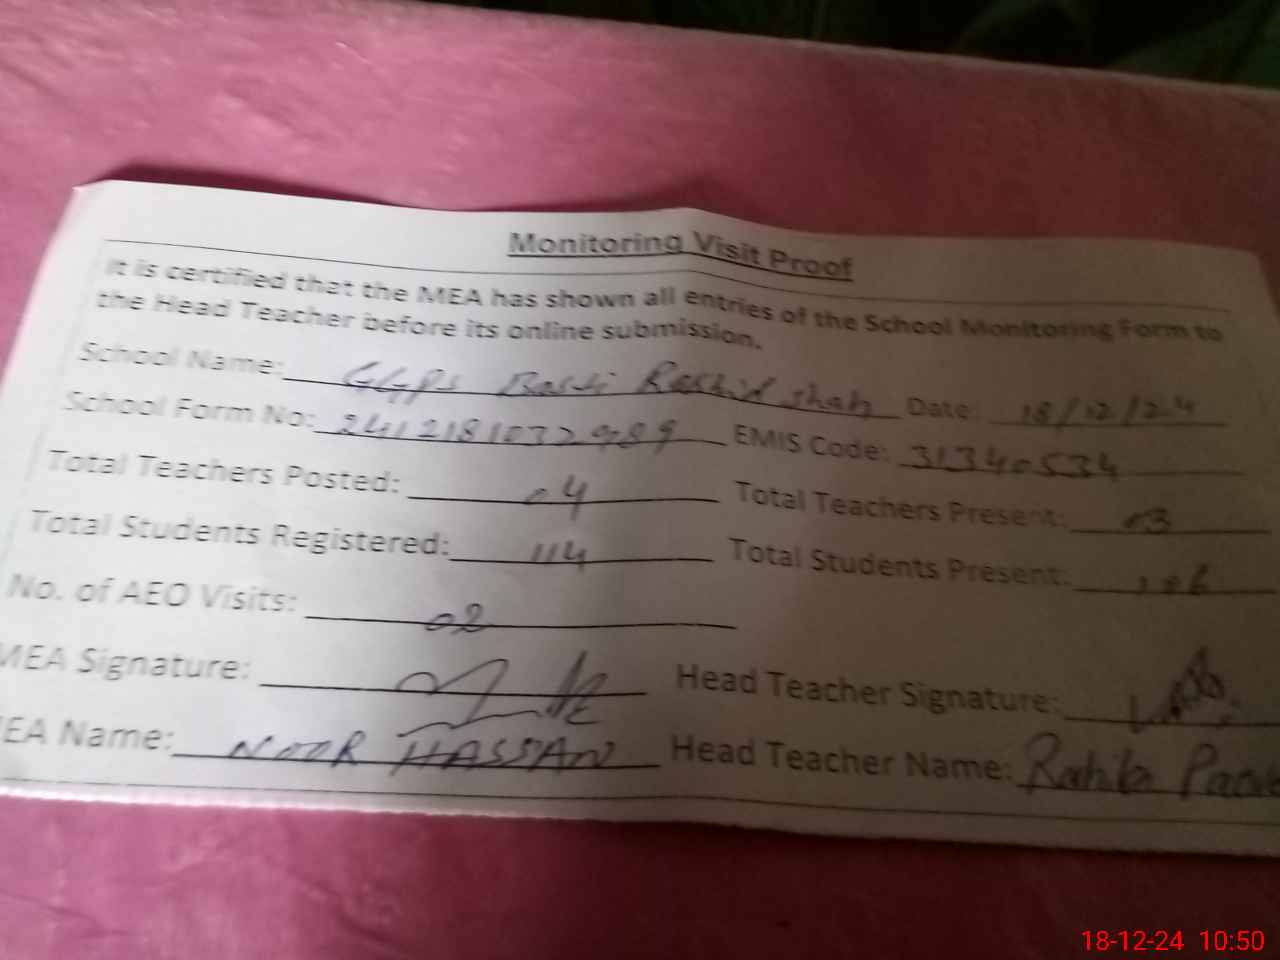 Monitoring Visit Proof
It is certified that the MEA has shown all entries of the School Monitoring Form to
the Head Teacher before its online submission.
School Name: GGPS Basti Rashid Shah Date: 18/12/24
School Form No: 2412181032989 EMIS Code: 31340534
Total Teachers Posted: 04 Total Teachers Present: 03
Total Students Registered: 114 Total Students Present: 106
No. of AEO Visits: 02
MEA Signature: Head Teacher Signature:
EA Name: NOOR HASSAN Head Teacher Name: Rahila
18-12-24 10:50